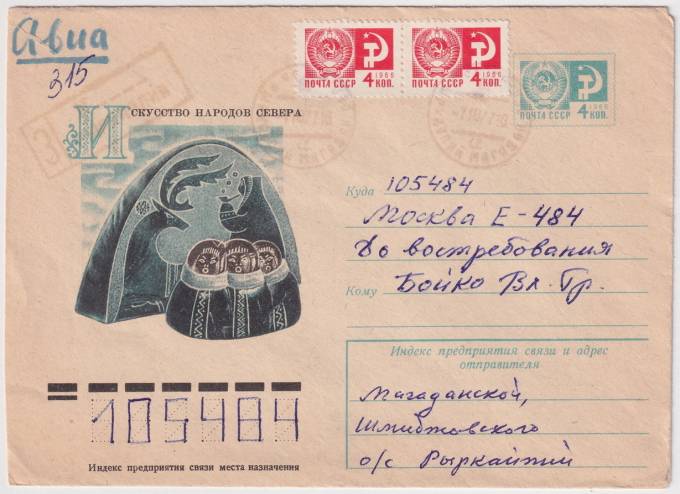 Авиа
315
ПОЧТА СССР 1966 4 КОП.
ПОЧТА СССР 1966 4 КОП.
ПОЧТА СССР 1966 4 КОП.
ИСКУССТВО НАРОДОВ СЕВЕРА
Куда 105484
Москва Е-484
До востребования
Кому Бойко Вл. Гр.
Индекс предприятия связи и адрес
отправителя
Магаданской,
Шмидтовского
о/с Рыркайпий
105484
Индекс предприятия связи места назначения